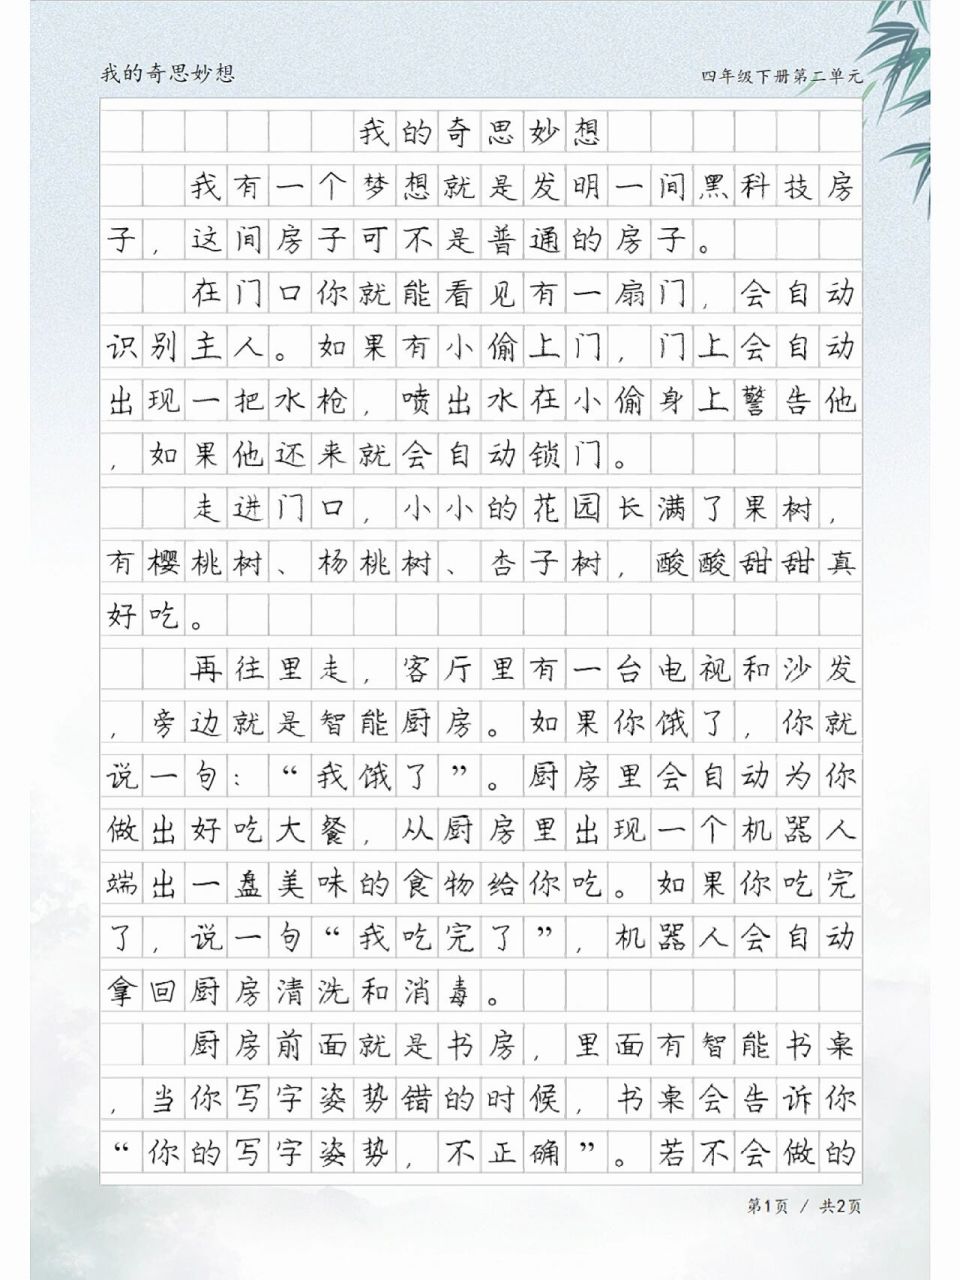 我的奇思妙想
四年级下册第二单元
我的奇思妙想
我有一个梦想就是发明一间黑科技房
子，这间房子可不是普通的房子。
在门口你就能看见有一扇门，会自动
识别主人。如果有小偷上门，门上会自动
出现一把水枪，喷出水在小偷身上警告他
，如果他还来就会自动锁门。
走进门口，小小的花园长满了果树，
有樱桃树、杨桃树、杏子树，酸酸甜甜真
好吃。
再往里走，客厅里有一台电视和沙发
，旁边就是智能厨房。如果你饿了，你就
说一句：“我饿了”。厨房里会自动为你
做出好吃大餐，从厨房里出现一个机器人
端出一盘美味的食物给你吃。如果你吃完
了，说一句“我吃完了”，机器人会自动
拿回厨房清洗和消毒。
厨房前面就是书房，里面有智能书桌
，当你写字姿势错的时候，书桌会告诉你
“你的写字姿势，不正确”。若不会做的
第1页 / 共2页